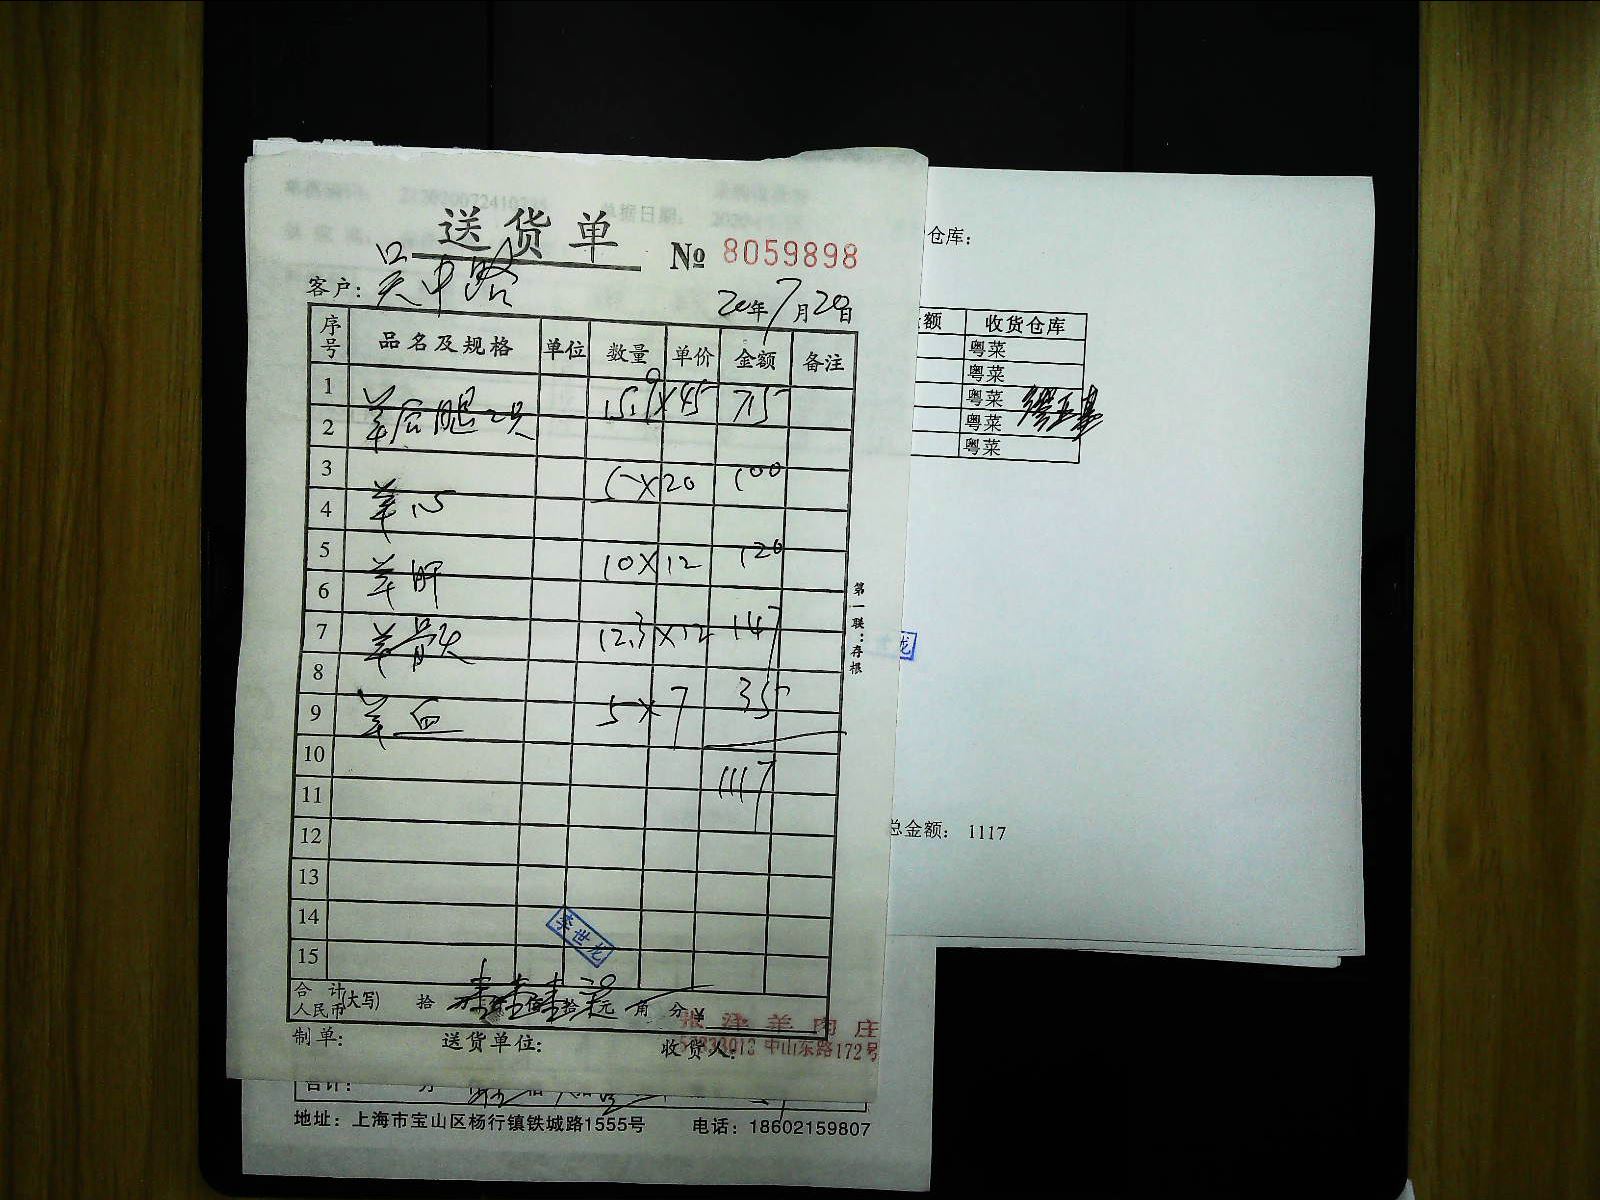 送货单
№ 8059898
客户: 吴中路
20年7月20日
序号 品名及规格 单位 数量 单价 金额 备注
1 羊后腿2只 15.9×45 715
2
3 羊心 5×20 100
4
5 羊肝 10×12 120
6
7 羊骨头 12.3×12 147
8
9 羊血 5×7 35
10
11 1117
12
13
14
15
李世龙
合计人民币(大写) 拾 万 壹仟壹佰壹拾柒元 角 分 ¥
张泽羊肉庄
中山东路172号
制单: 送货单位: 收货人:
第一联:存根
仓库:
额 收货仓库
粤菜
粤菜
粤菜
粤菜
粤菜
龙
总金额: 1117
合计:
地址: 上海市宝山区杨行镇铁城路1555号 电话: 18602159807